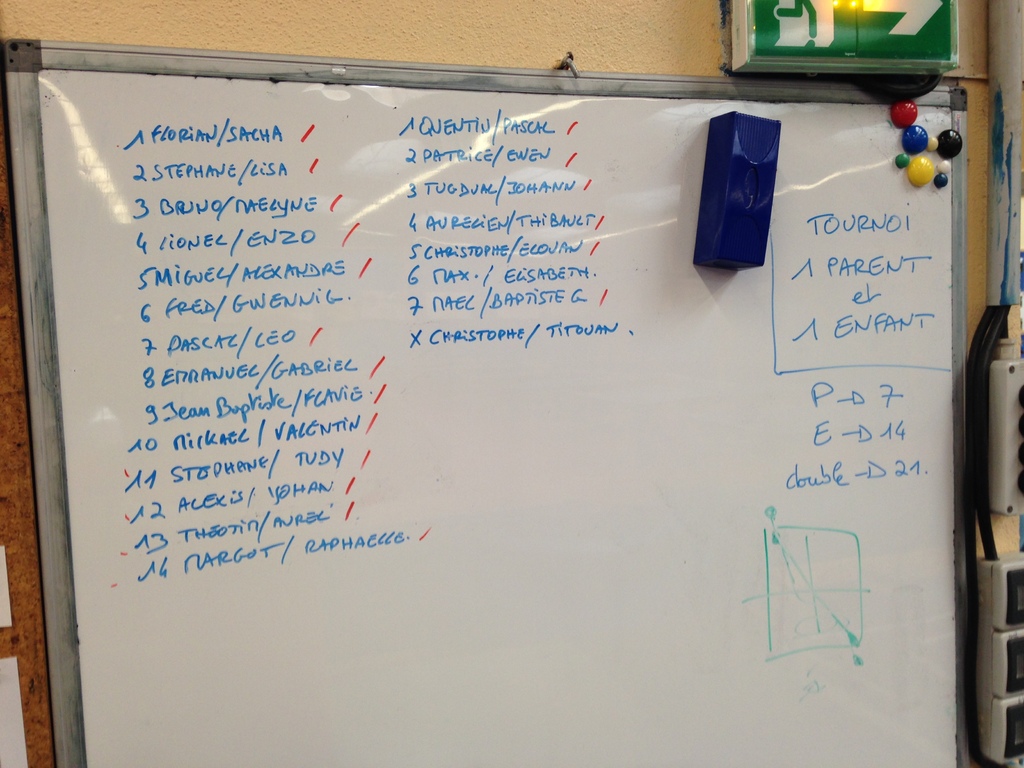 1 FLORIAN/SACHA /
2 STEPHANE/LISA /
3 BRUNO/MAELYNE /
4 LIONEL/ENZO /
5 MIGUEL/ALEXANDRE /
6 FRED/GWENNIG.
7 PASCAL/LEO /
8 EMMANUEL/GABRIEL /
9 Jean Baptiste/FLAVIE. /
10 MICKAEL/VALENTIN /
11 STEPHANE/TUDY /
12 ALEXIS/YOHAN /
13 THEOTIM/AUREL /
14 MARGOT/RAPHAELLE. /
1 QUENTIN/PASCAL /
2 PATRICE/EWEN /
3 TUGDUAL/JOHANN /
4 AURELIEN/THIBAULT /
5 CHRISTOPHE/ELOUAN /
6 MAX./ELISABETH.
7 MAEL/BAPTISTE G /
X CHRISTOPHE/TITOUAN.
TOURNOI
1 PARENT
et
1 ENFANT
P → 7
E → 14
double → 21.